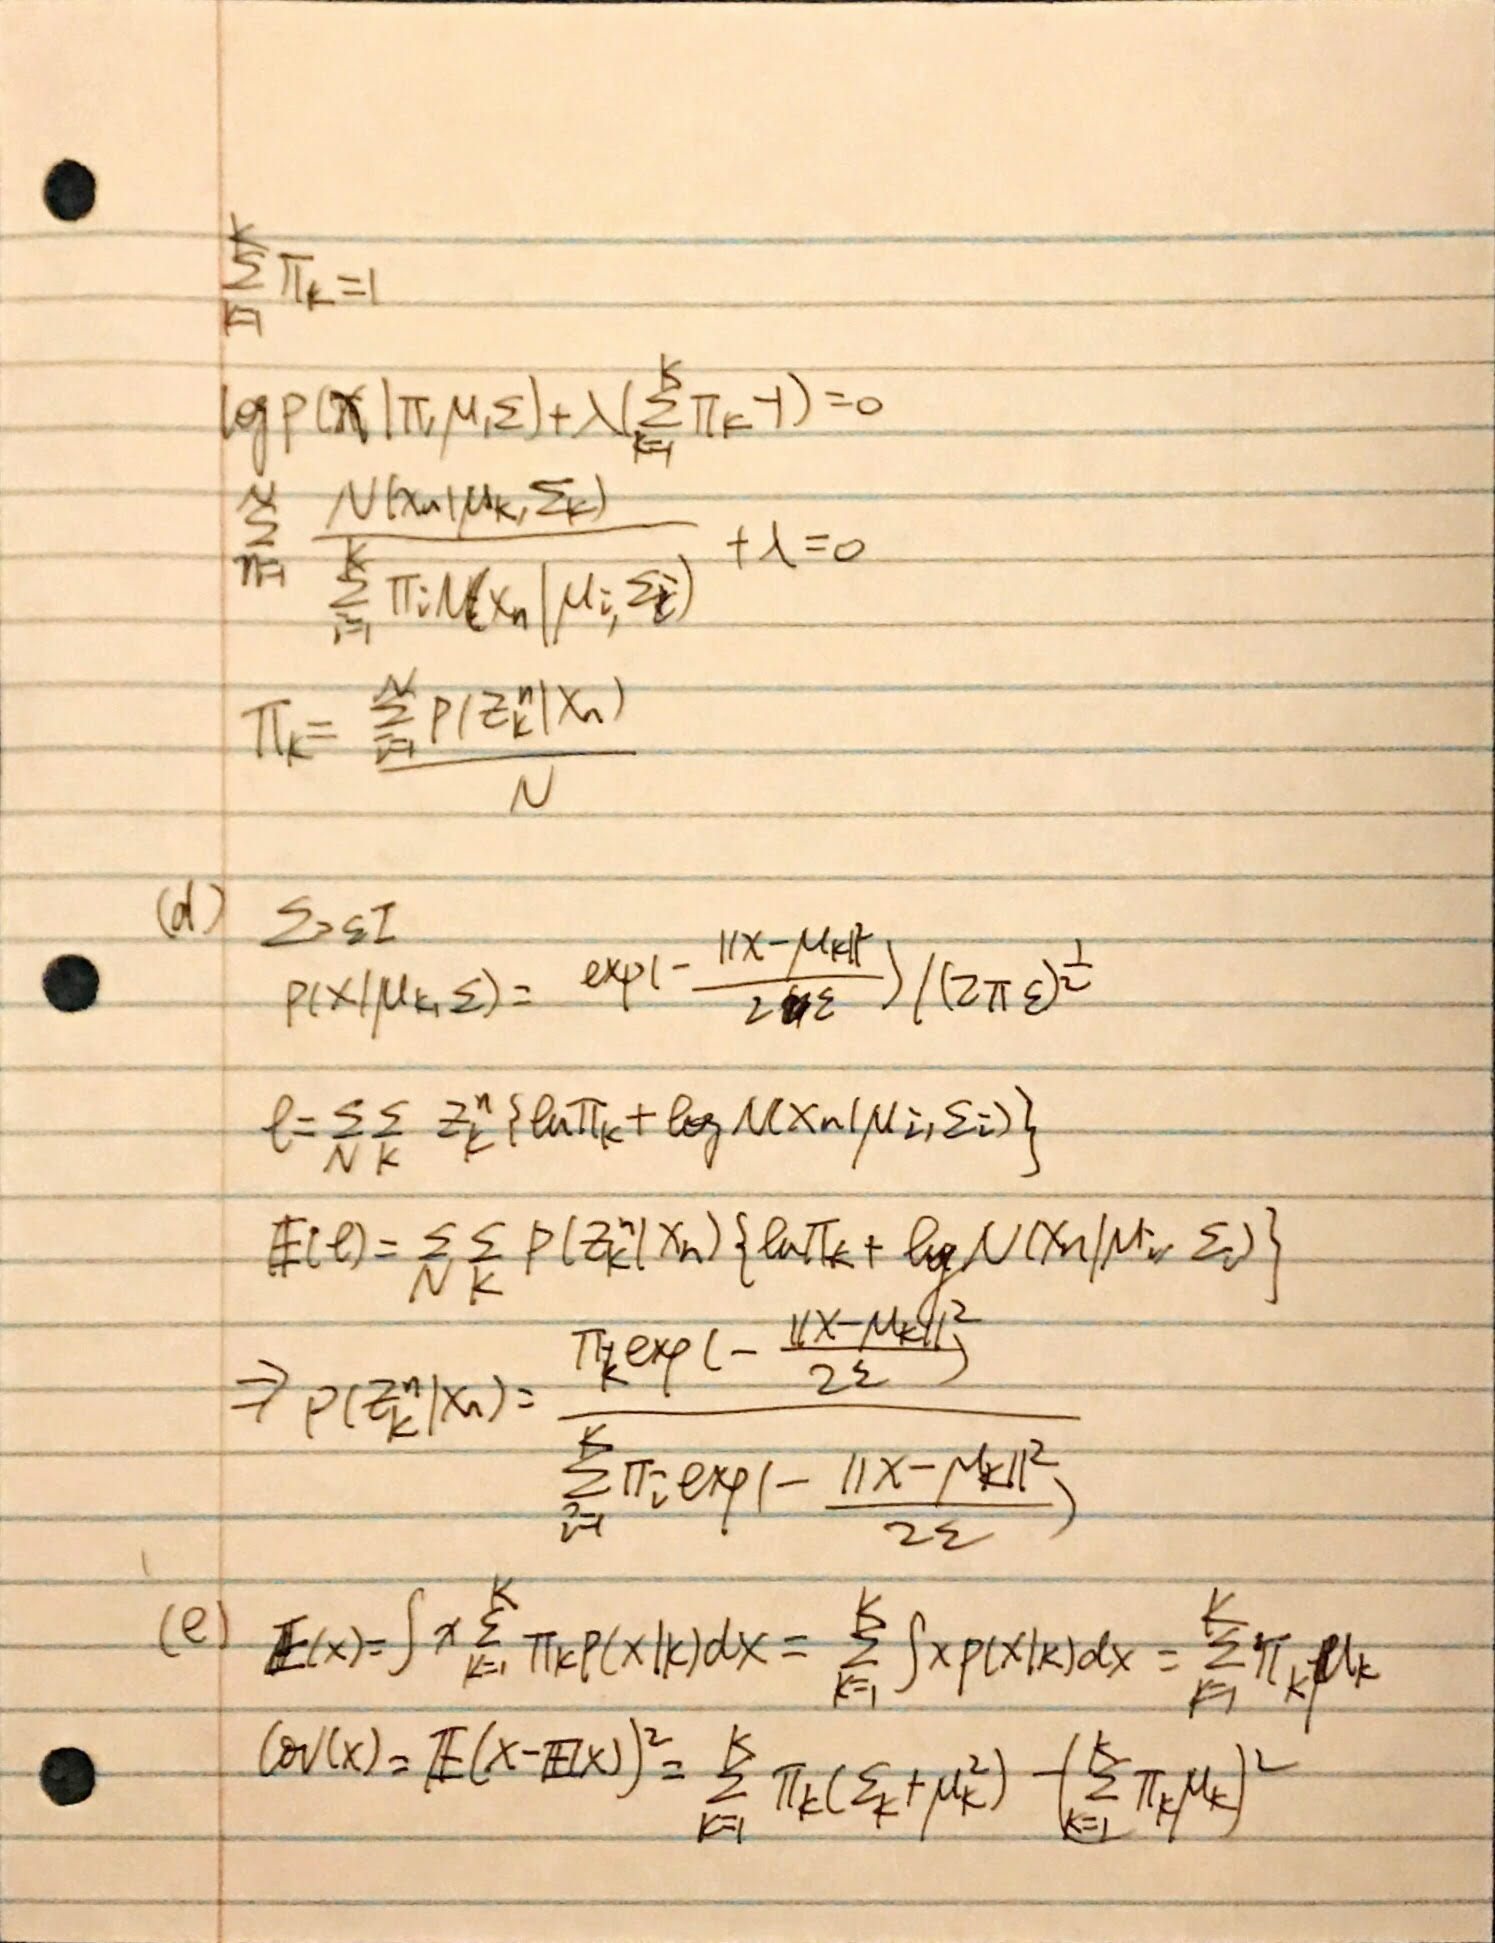 \sum_{k=1}^{K} π_k = 1
log p(x|π,μ,Σ) + λ(\sum_{k=1}^{K} π_k - 1) = 0
\sum_{n=1}^{N} \frac{N(x_n|μ_k,Σ_k)}{\sum_{i=1}^{K} π_i N(x_n|μ_i,Σ_i)} + λ = 0
π_k = \frac{\sum_{i=1}^{N} p(z_k^n|x_n)}{N}
(d) Σ=εI
p(x|μ_k,Σ) = exp(-\frac{||x-μ_k||^2}{2ε}) / (2πε)^{\frac{1}{2}}
ℓ = \sum_N \sum_K z_k^n {ln π_k + log N(x_n|μ_i,Σ_i)}
𝔼(ℓ) = \sum_N \sum_K p(z_k^n|x_n) {ln π_k + log N(x_n|μ_i, Σ_i)}
⇒ p(z_k^n|x_n) = \frac{π_k exp(-\frac{||x-μ_k||^2}{2ε})}{\sum_{i=1}^{K} π_i exp(-\frac{||x-μ_k||^2}{2ε})}
(e) 𝔼(x) = ∫ x \sum_{k=1}^{K} π_k p(x|k)dx = \sum_{k=1}^{K} ∫ x p(x|k)dx = \sum_{k=1}^{K} π_k μ_k
Cov(x) = 𝔼(x-𝔼(x))^2 = \sum_{k=1}^{K} π_k(Σ_k+μ_k^2) - (\sum_{k=1}^{K} π_k μ_k)^2